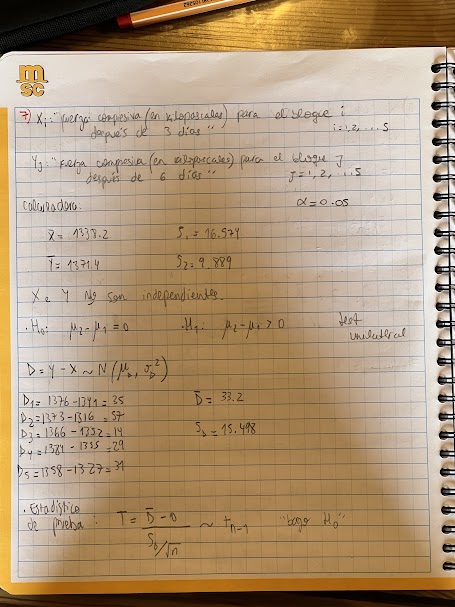 m
sc
7) Xi: "fuerza compresiva (en kilopascales) para el bloque i
después de 3 días"
i=1,2,...5
Yj: "fuerza compresiva (en kilopascales) para el bloque J
después de 6 días"
J=1,2,...5
Calculadora:
α=0.05
X̄ = 1333.2
S₁ = 16.574
Ȳ = 1371.4
S₂ = 9.889
X e Y No son independientes.
· H₀: μ₂-μ₁ = 0
· H₁: μ₂-μ₁ > 0
test
unilateral
D = Y - X ~ N(μ_D, σ_D²)
D1 = 1376-1341 = 35
D2 = 1373-1316 = 57
D3 = 1366-1352 = 14
D4 = 1384-1355 = 29
D5 = 1358-1327 = 31
D̄ = 33.2
S_D = 15.498
· Estadístico
de prueba: T = (D̄ - 0)/(S_D/√n) ~ t_{n-1} "bajo H₀"